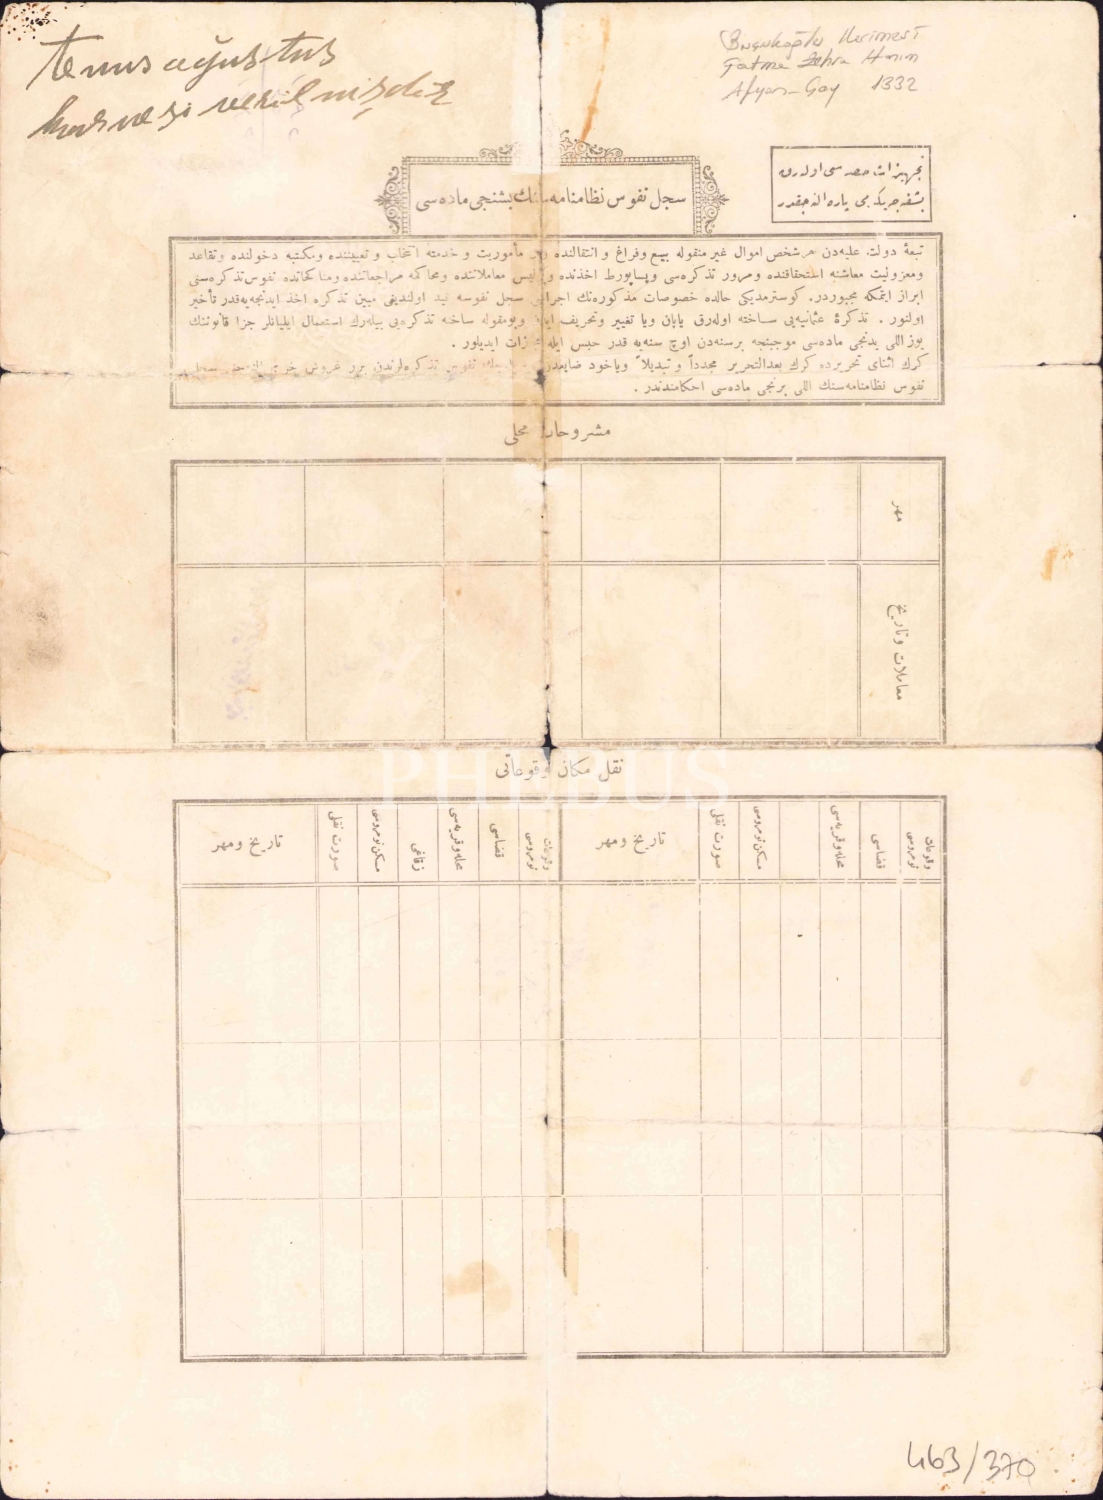 temus ağustus
kahvesi verilmişdir
Kerimesi
Fatma Zehra Hanım
Afyon - Çay 1332
تجهیزات حصه سی اوله رق
بشقه جه یكرمی پاره النه جقدر
سجل نفوس نظامنامه سنك بشنجی ماده سی
تبعهٔ دولت علیه دن هر شخص اموال غیر منقوله بیع وفراغ و انتقالنده مأموریت و خدمته انتخاب و تعییننده ومكتبه دخولنده وتقاعد
ومعزولیت معاشنه استحقاقنده ومرور تذكره سی وپساپورط اخذنده وپولیس معاملاتنده ومحاكمه مراجعاتنده ومناكحاتده نفوس تذكره سنی
ابراز ایتمكه مجبوردر. كوسترمدیكی حالده خصوصات مذكوره نك اجراسی سجل نفوسه قید اولندیغنی مبین تذكره اخذ ایدنجه یه قدر تأخیر
اولنور . تذكرهٔ عثمانیه یی ساخته اوله رق یاپان ویا تغییر وتحریف ایدن وبومقوله ساخته تذكره یی بیله رك استعمال ایلیانلر جزا قانوننك
یوز اللی یدنجی ماده سی موجبنجه برسنه دن اوچ سنه یه قدر حبس ایله مجازات ایدیلور .
كرك اثنای تحریرده كرك بعدالتحریر مجدداً و تبدیلاً ویاخود ضایعدن نفوس تذكره لرندن برر غروش خرج
نفوس نظامنامه سنك اللی برنجی ماده سی احكامندندر .
مشروحات محلی
مهر
معاملات و تاریخ
نقل مكان وقوعاتی
PHEBUS
وقوعات نومروسی
قضاسی
محله وقریه سی
مسكن نومروسی
صورت نقلی
تاریخ ومهر
وقوعات نومروسی
قضاسی
محله وقریه سی
زقاغی
مسكن نومروسی
صورت نقلی
تاریخ ومهر
463/370